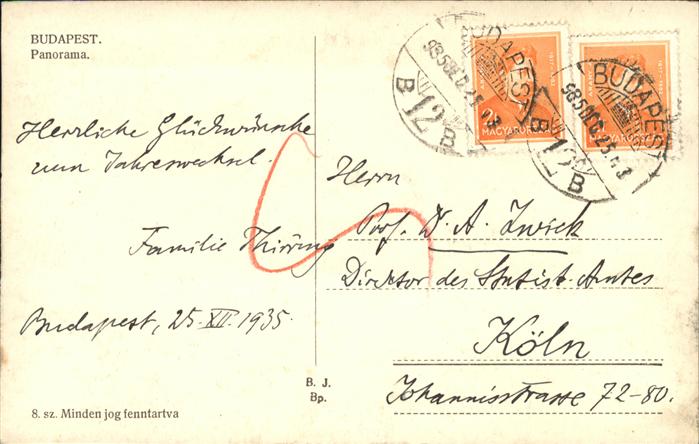 BUDAPEST.
Panorama.
Herzliche Glückwünsche
zum Jahreswechsel.
Familie Thirring
Budapest, 25. XII. 1935.
8. sz. Minden jog fenntartva
B. J.
Bp.
BUDAPEST
12
B B
MAGYARORSZÁG
BUDAPEST
12
B B
Herrn
Prof. D. A. Zwick
Direktor des Statist. Amtes
Köln
Johannisstrasse 72-80.